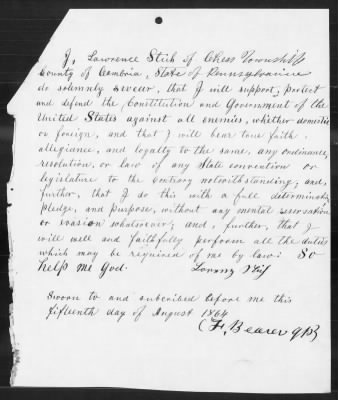 I, Lawrence Stich of Chess Township
County of Cambria, State of Pennsylvania
do solemnly swear, that I will support, protect
and defend the Constitution and Government of the
United States against all enemies, whether domestic
or foreign, and that I will bear true faith,
allegiance, and loyalty to the same, any ordinance,
resolution, or law of any State convention or
legislature to the contrary notwithstanding; and,
further, that I do this with a full determination,
pledge, and purpose, without any mental reservation
or evasion whatsoever; and, further, that I
will well and faithfully perform all the duties
which may be required of me by law: So
help me God.
Sworn to and subscribed before me this
fifteenth day of August 1864
Bearer JP